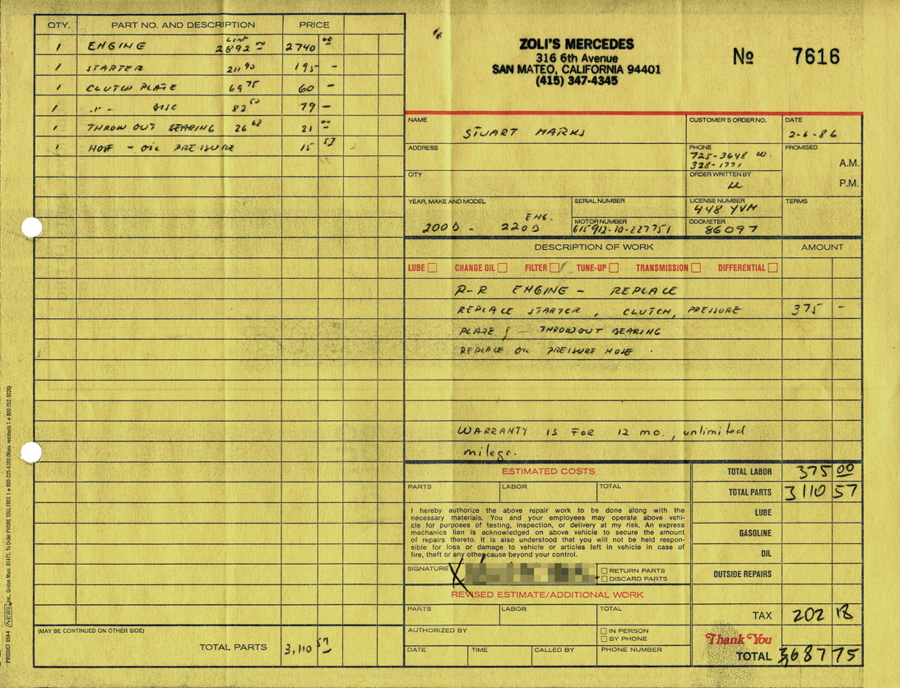 QTY. PART NO. AND DESCRIPTION PRICE
LIST
1 ENGINE 2892 00 2740 00
1 STARTER 211 90 195 -
1 CLUTCH PLATE 69 75 60 -
1 " - DISC 82 50 79 -
1 THROW OUT BEARING 26 68 21 00
1 HOSE - OIL PRESSURE 15 57
(MAY BE CONTINUED ON OTHER SIDE)
TOTAL PARTS 3,110 57
ZOLI'S MERCEDES
316 6th Avenue
SAN MATEO, CALIFORNIA 94401
(415) 347-4345
No 7616
NAME STUART MARKS
CUSTOMER'S ORDER NO.
DATE 2-6-86
ADDRESS
PHONE 725-3648 W.
328-1771
PROMISED
A.M.
P.M.
CITY
ORDER WRITTEN BY
YEAR, MAKE AND MODEL 200D - 220D ENG.
SERIAL NUMBER
MOTOR NUMBER 615912-10-227751
LICENSE NUMBER 448 YVM
ODOMETER 86097
TERMS
DESCRIPTION OF WORK AMOUNT
LUBE CHANGE OIL FILTER TUNE-UP TRANSMISSION DIFFERENTIAL
R-R ENGINE - REPLACE
REPLACE STARTER, CLUTCH, PRESSURE 375 -
PLATE & - THROWOUT BEARING
REPLACE OIL PRESSURE HOSE.
WARRANTY IS FOR 12 mo., unlimited
milege.
ESTIMATED COSTS
PARTS LABOR TOTAL
I hereby authorize the above repair work to be done along with the
necessary materials. You and your employees may operate above vehi-
cle for purposes of testing, inspection, or delivery at my risk. An express
mechanics lien is acknowledged on above vehicle to secure the amount
of repairs thereto. It is also understood that you will not be held respon-
sible for loss or damage to vehicle or articles left in vehicle in case of
fire, theft or any other cause beyond your control.
SIGNATURE X
RETURN PARTS
DISCARD PARTS
REVISED ESTIMATE/ADDITIONAL WORK
PARTS LABOR TOTAL
AUTHORIZED BY
IN PERSON
BY PHONE
DATE TIME CALLED BY PHONE NUMBER
TOTAL LABOR 375 00
TOTAL PARTS 3110 57
LUBE
GASOLINE
OIL
OUTSIDE REPAIRS
TAX 202 18
Thank You
TOTAL 3,687 75